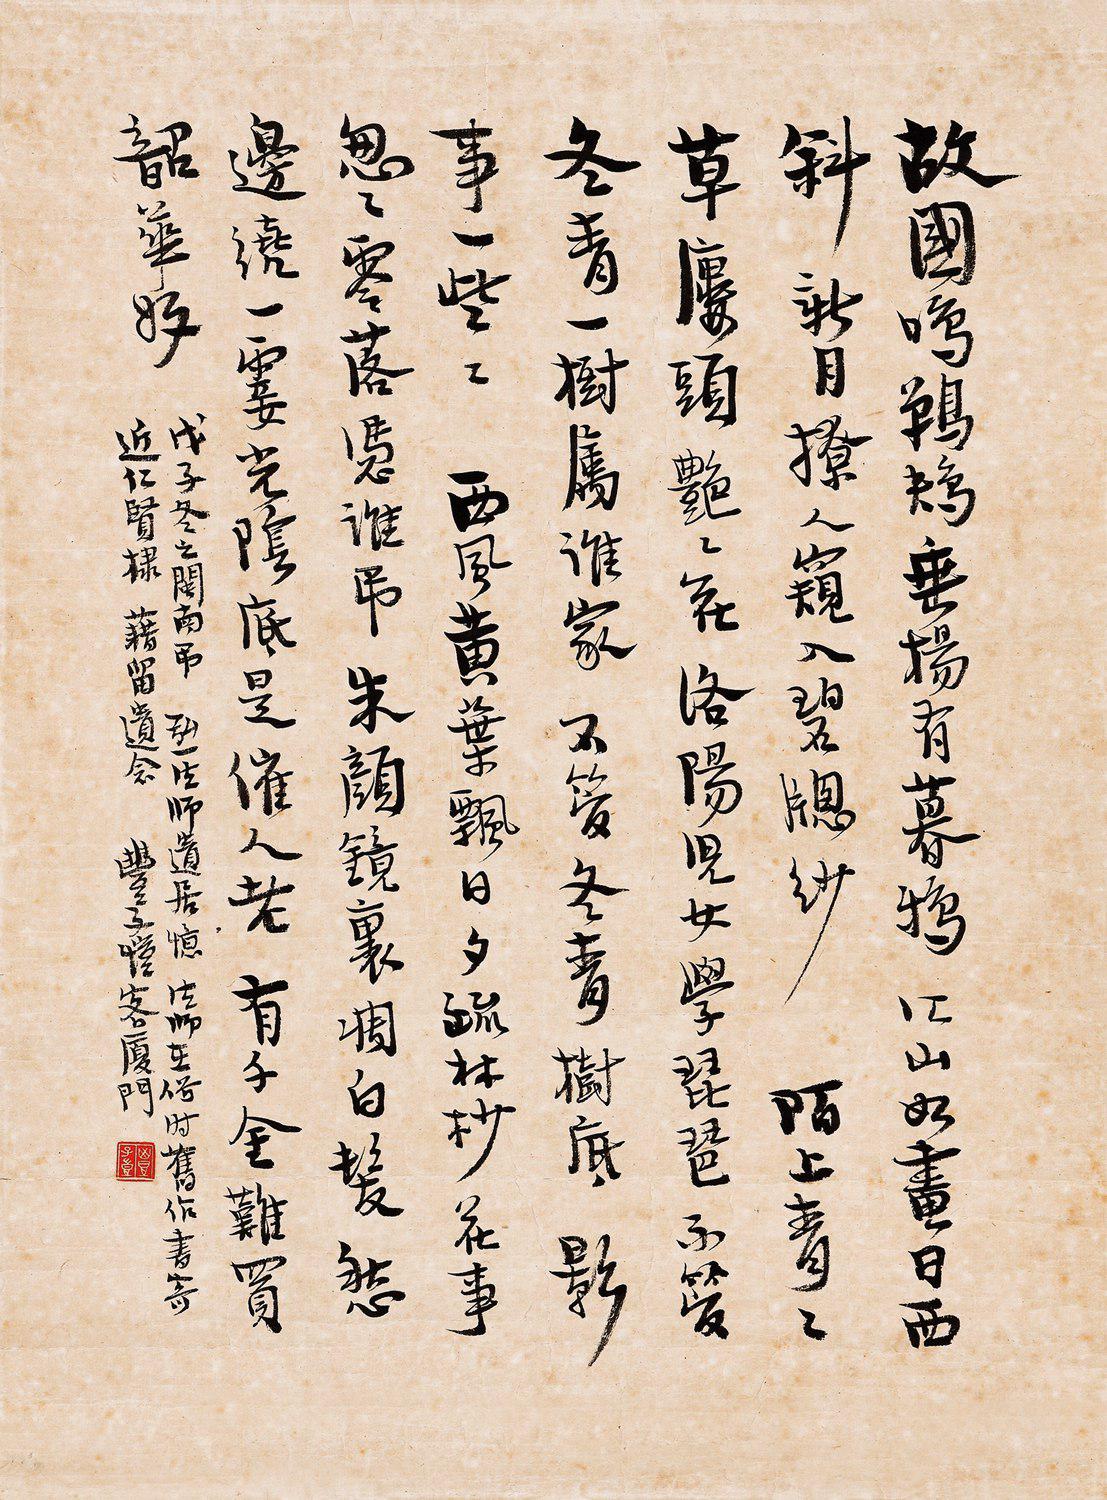 故國鳴鵜鴂垂楊有暮鴉江山如畫日西
斜新月撩人窺入碧牕紗陌上青〻
草樓頭艷〻花洛陽兒女學琵琶不管
冬青一樹屬誰家不管冬青樹底影
事一些〻西風黃葉飄日夕疏林杪花事
匆〻零落憑誰弔朱顏鏡裏凋白髮愁
邊繞一霎光陰底是催人老有千金難買
韶華好
戊子冬之閩南弔弘一法師遺居憶法師在俗时舊作書寄
近仁賢棣藉留遺念豐子愷客厦門